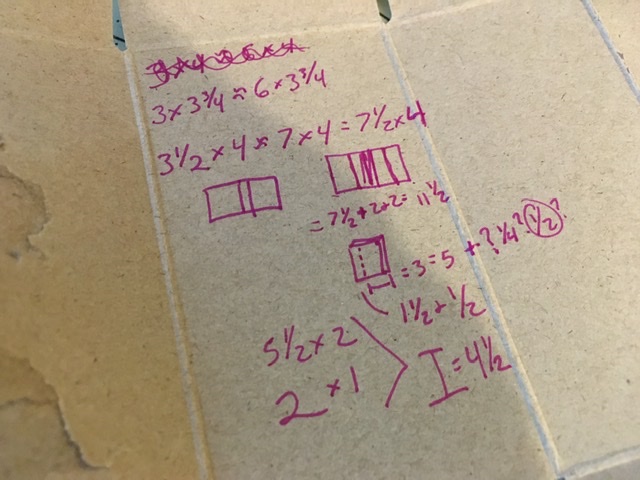 3 x 3 3/4 ≈ 6 x 3 3/4
3 1/2 x 4 ≈ 7 x 4 = 7 1/2 x 4
= 7 1/2 + 2 + 2 = 11 1/2
= 3 = 5 + ? 1/4? 1/2?
1 1/2 + 1/2
5 1/2 x 2
2 x 1
I = 4 1/2